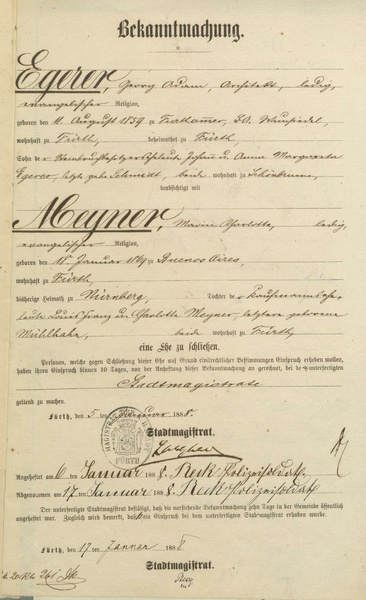 Bekanntmachung.
Egerer, Georg Adam, Architekt, ledig,
evangelischer Religion,
geboren den 11. August 1859 zu B.A. Wunsiedel,
wohnhaft zu Fürth, beheimathet zu Fürth
Sohn der Johann u. Anna Margareta
Egerer, letzte geb. Schmidt, beide wohnhaft zu Schönbrunn,
beabsichtigt mit
Meyner, Maria Charlotte, ledig,
evangelischer Religion,
geboren den 18. Januar zu Buenos Aires,
wohnhaft zu Fürth,
bisherige Heimath zu Nürnberg, Tochter der Kaufmannsehe-
leute Louis Franz u. Charlotte Meyner, letztere geborene
Mühlhahn, beide wohnhaft zu Fürth,
eine Ehe zu schließen.
Personen, welche gegen Schließung dieser Ehe auf Grund civilrechtlicher Bestimmungen Einspruch erheben wollen,
haben ihren Einspruch binnen 10 Tagen, von der Anheftung dieser Bekanntmachung an gerechnet, bei dem unterfertigten
Stadtmagistrate
geltend zu machen.
Fürth, den 5. Januar 1888.
Stadtmagistrat.
Angeheftet am 6 ten Januar 1888. Reck Polizeisoldat
Abgenommen 17 ten Januar 1888. Reck Polizeisoldat
Der unterfertigte Stadtmagistrat bestätigt, daß die vorstehende Bekanntmachung zehn Tage in der Gemeinde öffentlich
angeheftet war. Zugleich wird bemerkt, daß kein Einspruch bei dem unterfertigten Stadtmagistrat erhoben wurde.
Fürth, den 17. Januar 1888
Stadtmagistrat.